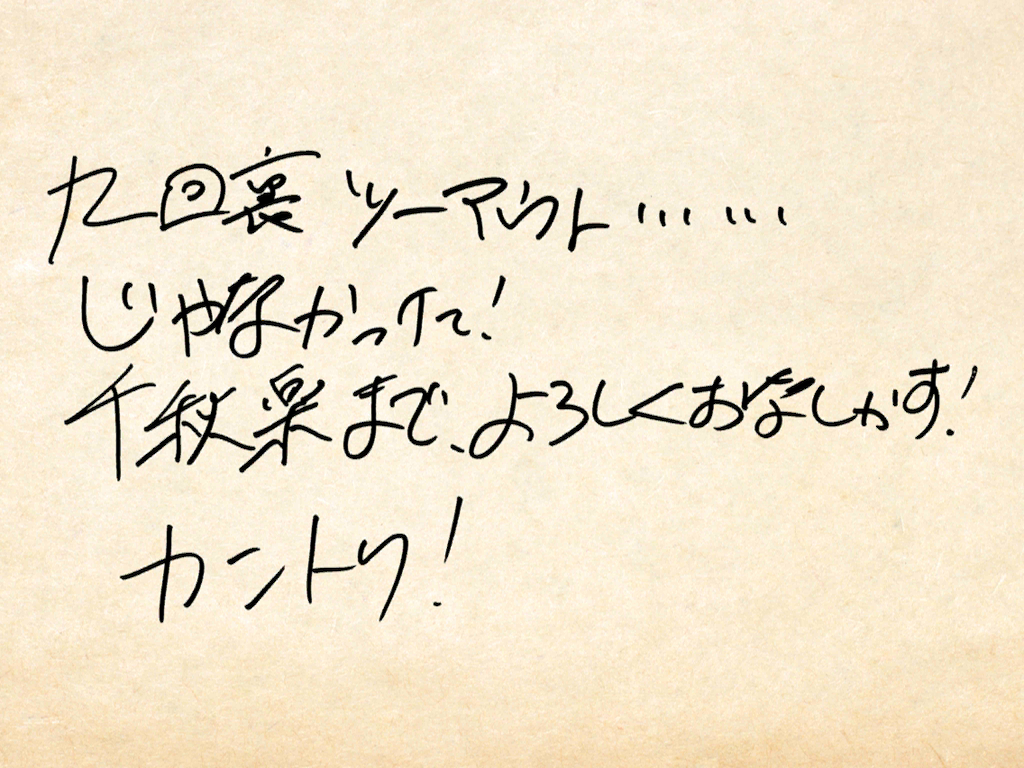 九回裏ツーアウト……
じゃなかって!
千秋楽まで、よろしくおなしかす!
カントリ!